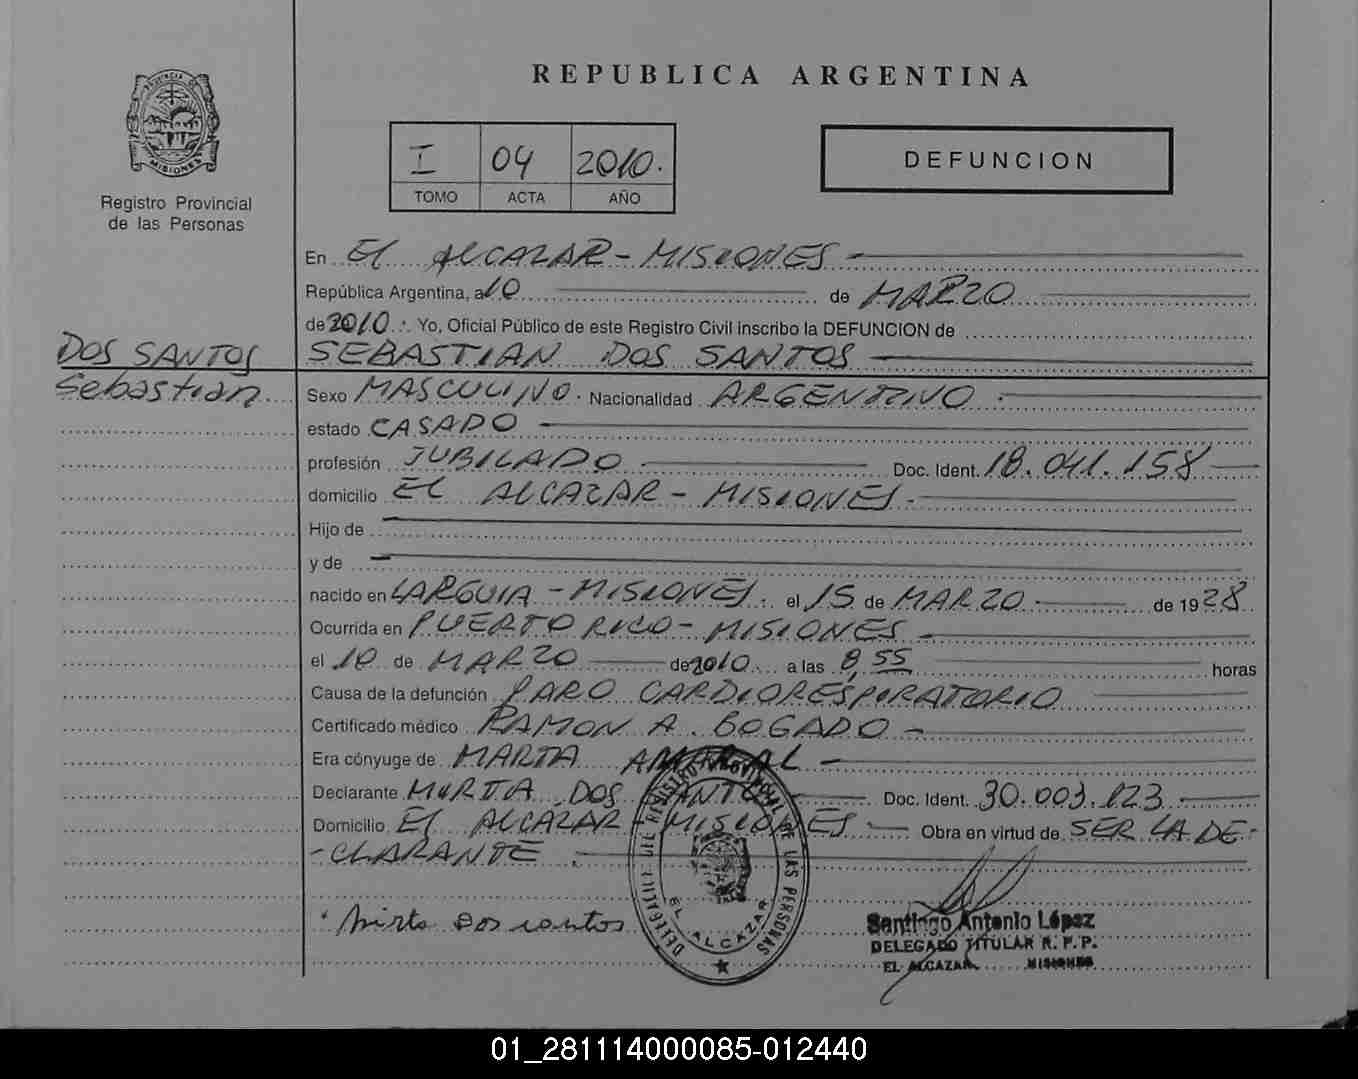 REPUBLICA ARGENTINA
PROVINCIA DE
MISIONES
Registro Provincial
de las Personas
I 04 2010.
TOMO ACTA AÑO
DEFUNCION
En El ALCAZAR - MISIONES
República Argentina, a 10 de MARZO
de 2010. Yo, Oficial Público de este Registro Civil inscribo la DEFUNCION de
DOS SANTOS SEBASTIAN DOS SANTOS
Sebastian Sexo MASCULINO. Nacionalidad ARGENTINO.
estado CASADO
profesión JUBILADO Doc. Ident. 18.041.158
domicilio EL ALCAZAR - MISIONES.
Hijo de
y de
nacido en LARGUIA - MISIONES. el 15 de MARZO de 1928
Ocurrida en PUERTO RICO - MISIONES
el 10 de MARZO de 2010 a las 8,55 horas
Causa de la defunción PARO CARDIORESPIRATORIO
Certificado médico RAMON A. BOGADO
Era cónyuge de MARTA AMARAL
Declarante MIRTA DOS SANTOS Doc. Ident. 30.003.123
Domicilio El ALCAZAR - MISIONES Obra en virtud de SER LA DE-
-CLARANTE.
Mirta Dos santos
DELEGACION DEL REGISTRO PROVINCIAL DE LAS PERSONAS
EL ALCAZAR
Santiago Antonio López
DELEGADO TITULAR R. P. P.
EL ALCAZAR MISIONES
01_281114000085-012440